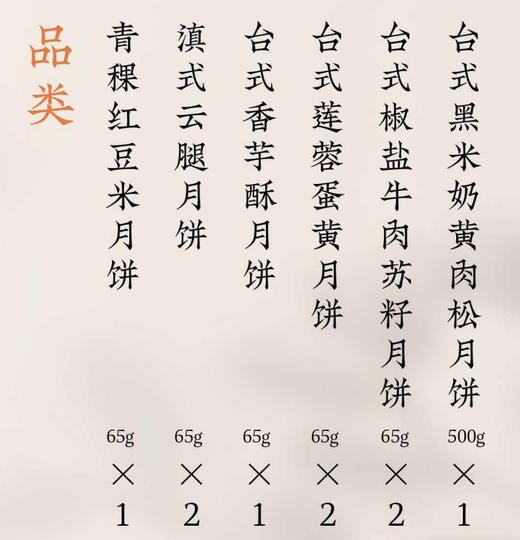 品类
青稞红豆米月饼 65g × 1
滇式云腿月饼 65g × 2
台式香芋酥月饼 65g × 1
台式莲蓉蛋黄月饼 65g × 2
台式椒盐牛肉苏籽月饼 65g × 2
台式黑米奶黄肉松月饼 500g × 1